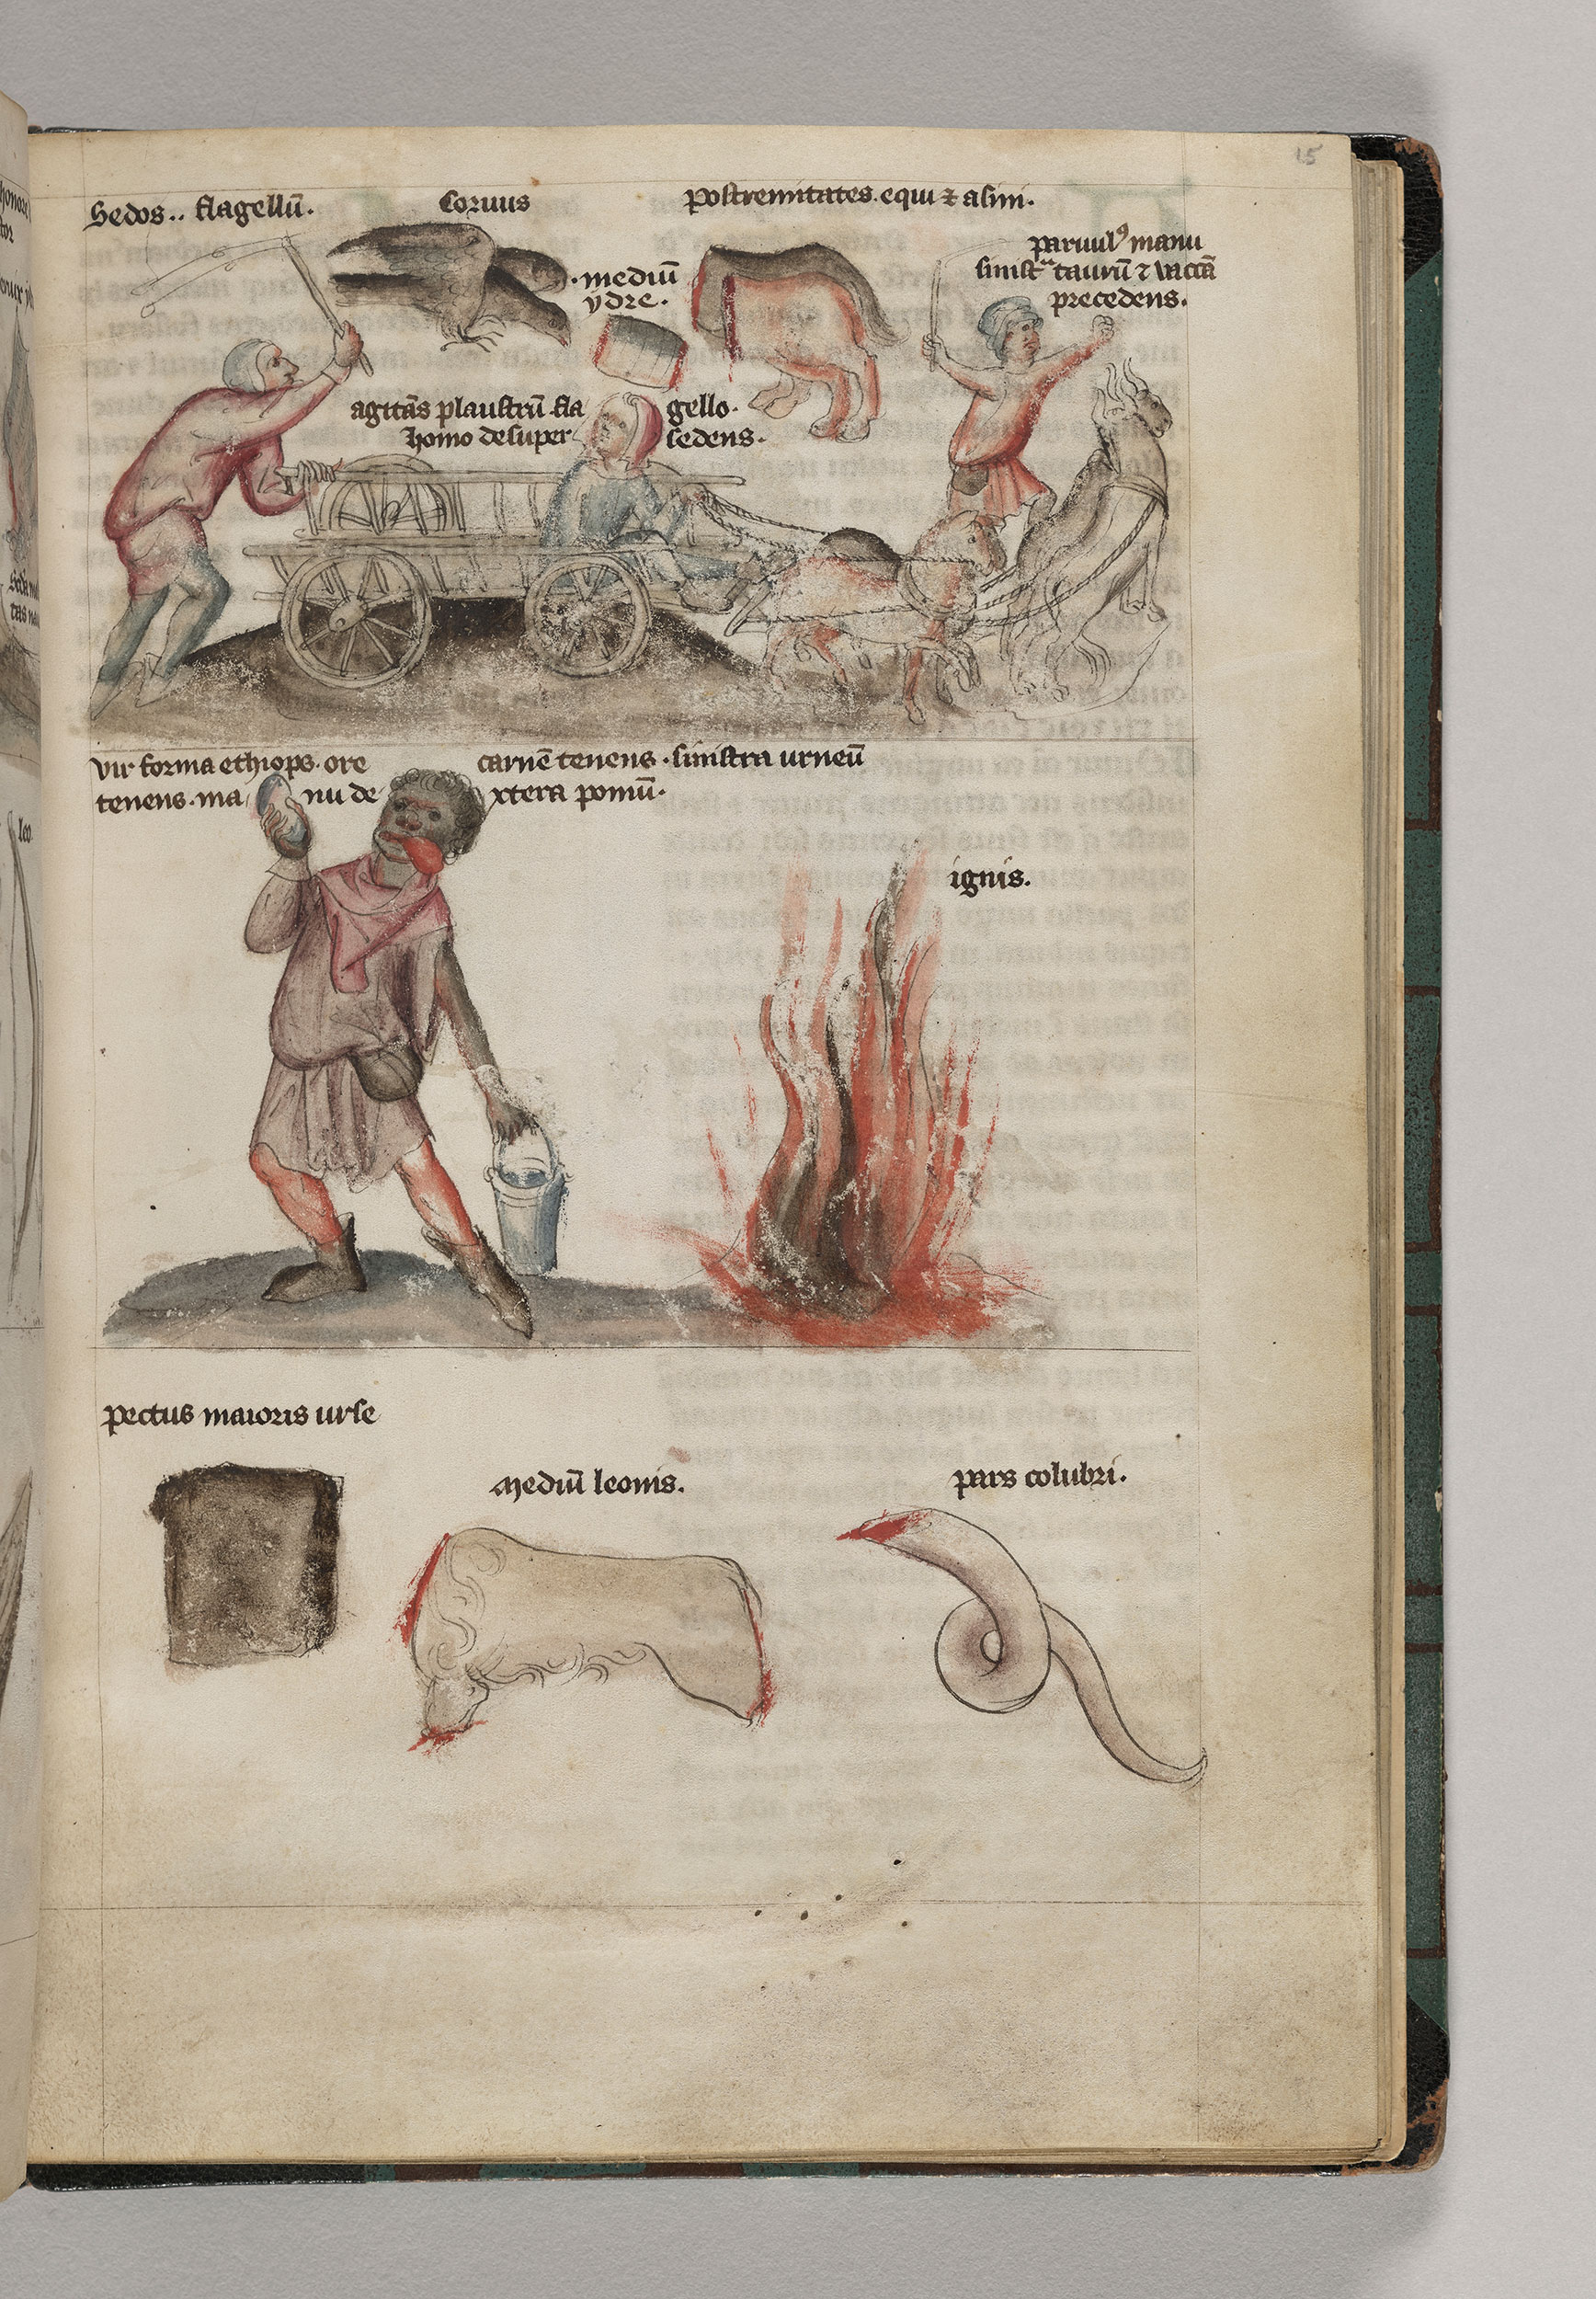 15
Sedos.. flagellū.
Coruus
postremitates. equi ⁊ asini.
paruulꝰ manu
sinistra taurū ⁊ vaccā
precedens.
.mediū
ydre.
agitās plaustrū fla gello.
homo desuper sedens.
vir forma ethiops. ore carnē tenens. sinistra urneū
tenens. ma nu de xtera pomū.
ignis.
pectus maioris urse
Mediū leonis.
pars colubri.
leo